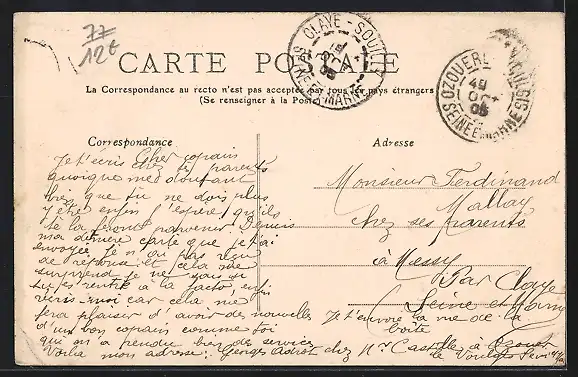 77
12€
CLAYE-SOUILLY
SEINE ET MARNE
OZOUER
SEINE ET MARNE
CARTE POSTALE
La Correspondance au recto n'est pas acceptée par tous les pays étrangers
(Se renseigner à la Poste)
Correspondance
Adresse
Je t'écris Cher copain
chez tes parents
quoique me doutant
bien que tu ne dois plus
y être enfin j'espère qu'ils
te la feront parvenir. Depuis
ma dernière carte que je t'ai
envoyée je n'ai pas reçu
de réponse et cela me
surprend je ne sais si
tu es rentré à la
car cela me
fera plaisir d'avoir des nouvelles
d'un bon copain comme toi
qui m'a rendu bien des services
Voila mon adresse: Georges chez Mr Castille à Ozouer
le Voulgis
Monsieur Ferdinand
Mallay
chez ses parents
à Messy
Par Claye
Seine et Marne
Je t'envoie la vue de la
boîte